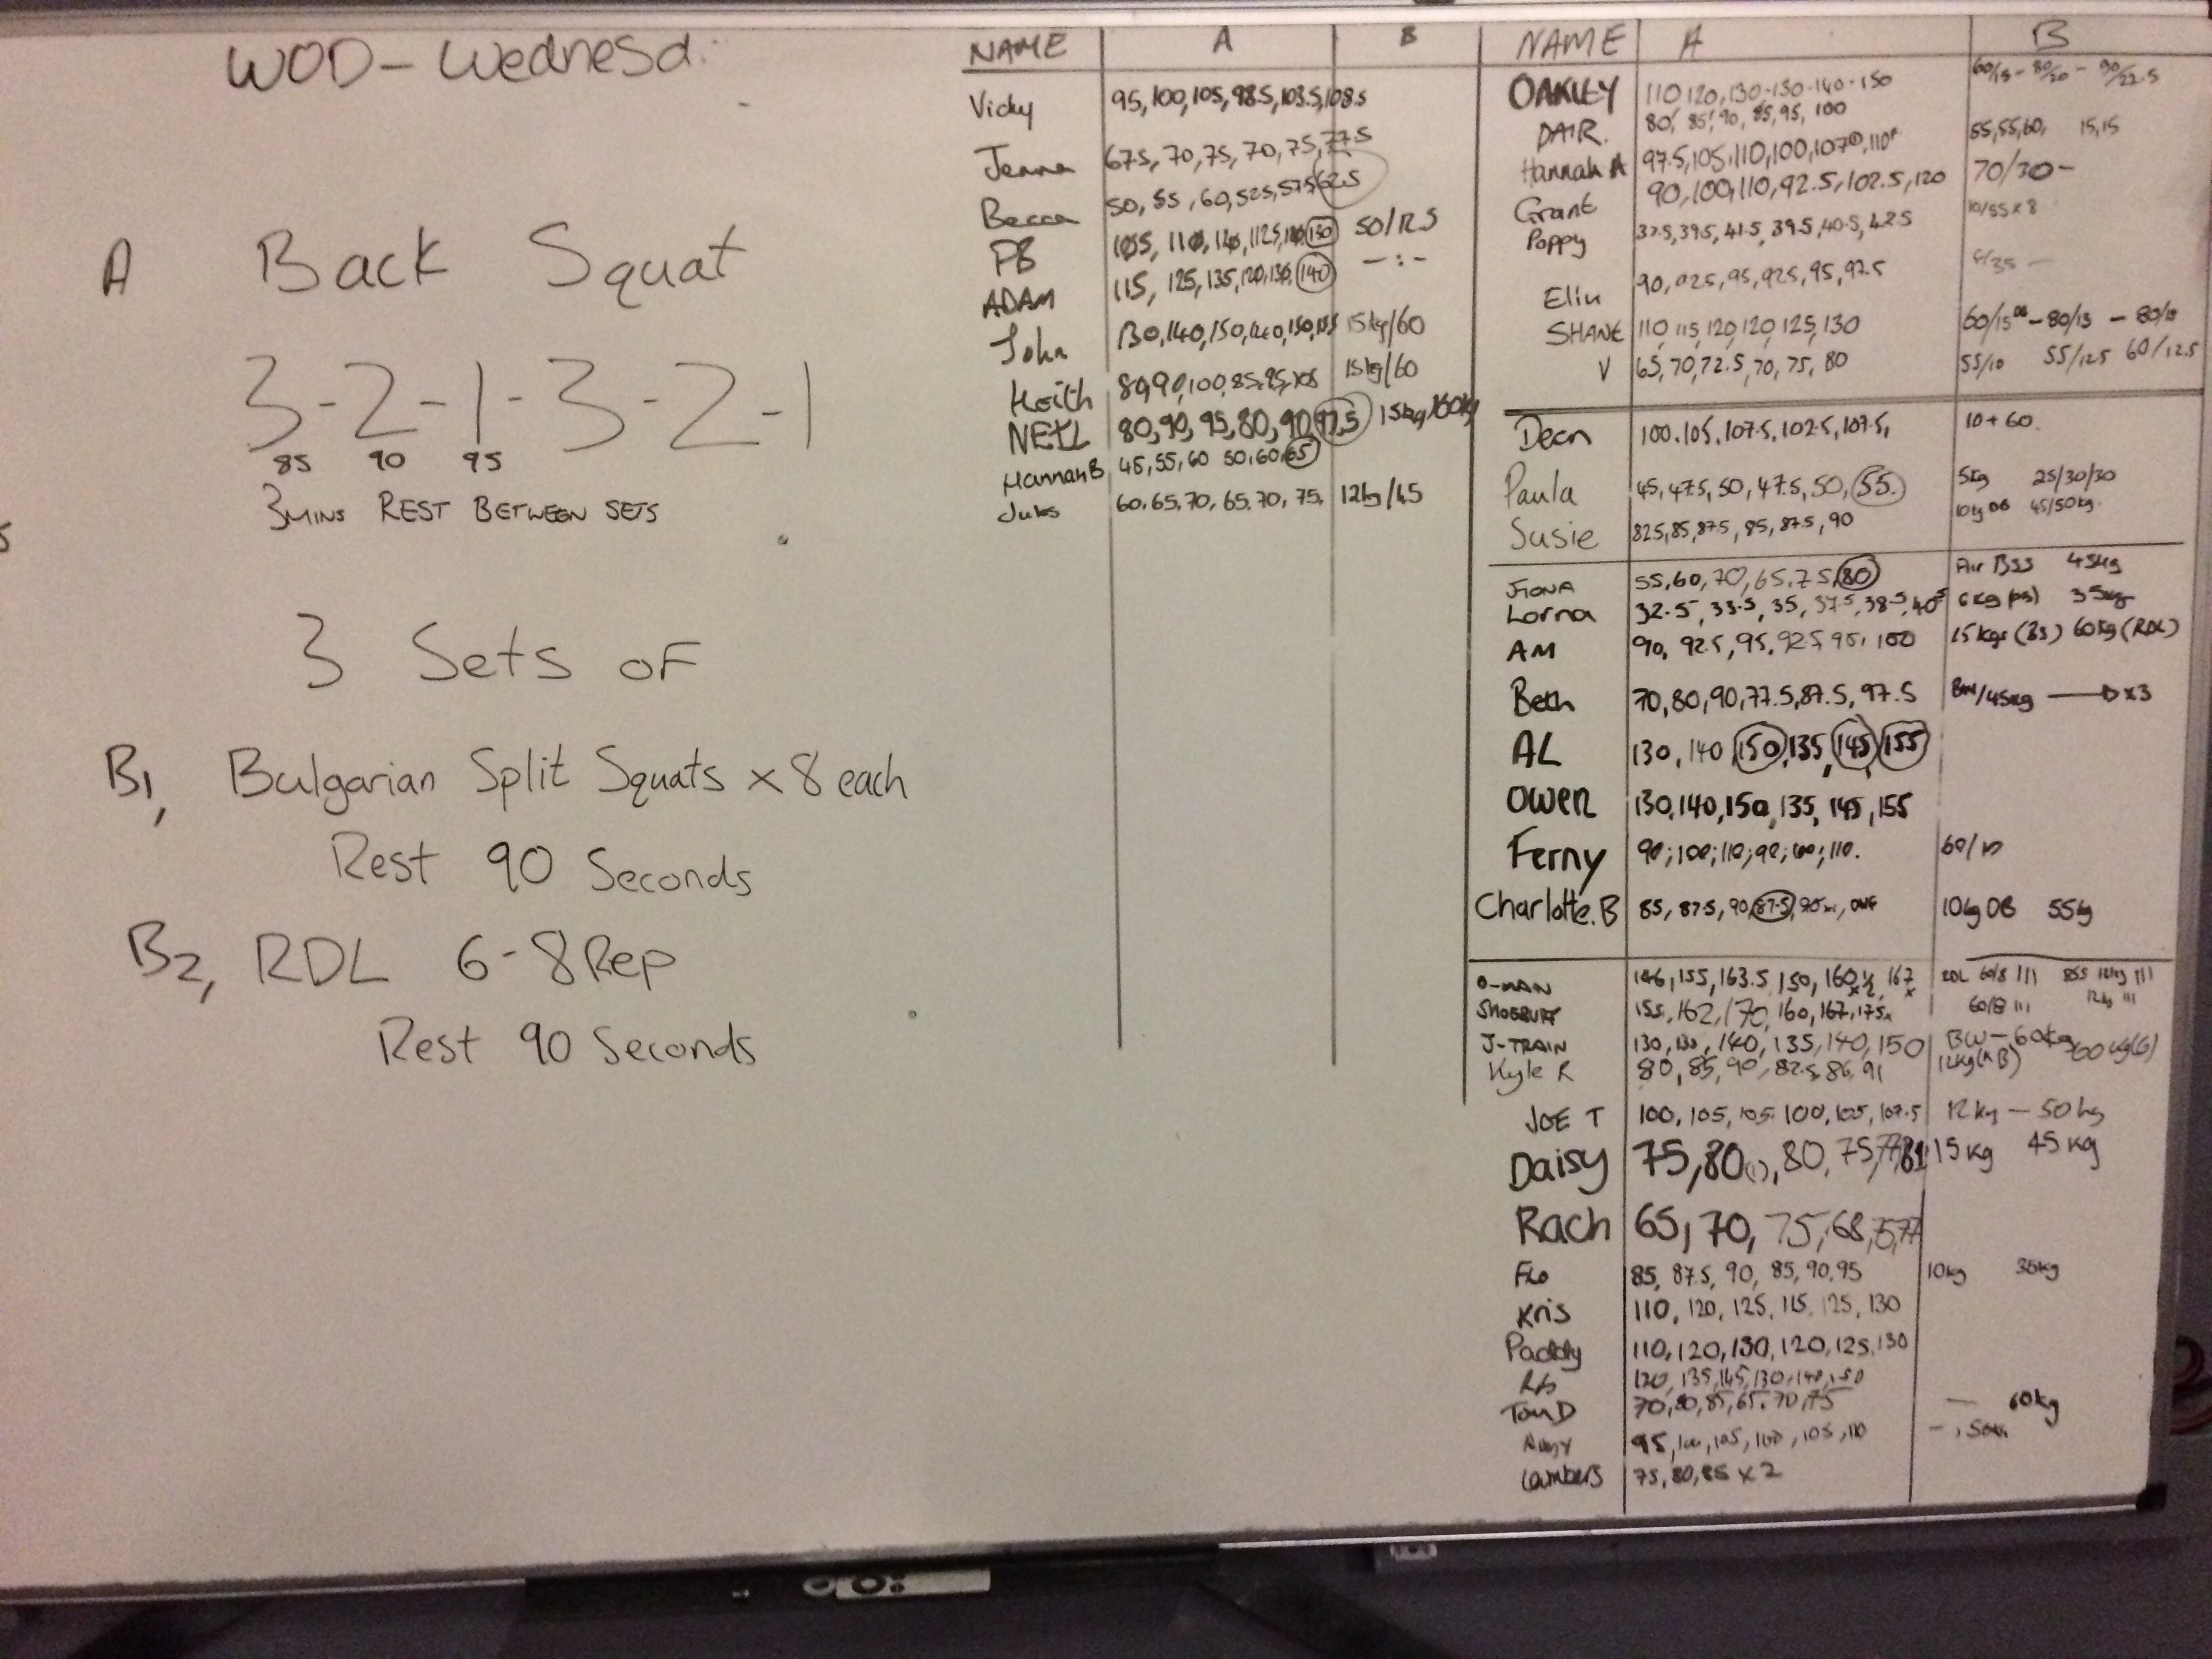 WOD - Wednesd
A Back Squat
3-2-1-3-2-1
85 90 95
3MINS REST BETWEEN SETS
3 Sets of
B1, Bulgarian Split Squats x 8 each
Rest 90 Seconds
B2, RDL 6-8 Rep
Rest 90 Seconds
NAME A B
Vicky 95, 100, 105, 98.5, 103.5, 108.5
Jenna 67.5, 70, 75, 70, 75, 77.5
Becca 50, 55, 60, 52.5, 57.5, 62.5
PB 105, 110, 120, 112.5, 130 50/12.5
ADAM 115, 125, 135, 120, 130, 140 - : -
John 130, 140, 150, 140, 150, 155 15kg/60
Keith 80, 90, 100, 85, 95, 105 15kg/60
NEIL 80, 90, 95, 80, 90, 97.5 15kg/60kg
Hannah B 45, 55, 60 50, 60, 65
Jules 60, 65, 70, 65, 70, 75. 12kg/45
NAME A B
OAKLEY 110 120, 130-130-140-150 60/15 - 80/20 - 90/22.5
DAIR. 80, 85, 90, 85, 95, 100 55, 55, 60, 15, 15
Hannah A 97.5, 105, 110, 100, 107, 110 70/30 -
Grant 90, 100, 110, 92.5, 102.5, 120
Poppy 37.5, 39.5, 41.5, 39.5, 40.5, 42.5
Elin 90, 92.5, 95, 92.5, 95, 97.5
SHANE 110, 115, 120, 120, 125, 130 60/15 - 80/15 - 80/15
V 65, 70, 72.5, 70, 75, 80 55/10 55/12.5 60/12.5
Dean 100, 105, 107.5, 102.5, 107.5, 10 + 60
Paula 45, 47.5, 50, 47.5, 50, 55. 5kg 25/30/30
Susie 82.5, 85, 87.5, 85, 87.5, 90 10kg DB 45/50kg.
FIONA 55, 60, 70, 65, 75, 80 Air BSS 45kg
Lorna 32.5, 33.5, 35, 37.5, 38.5, 40.5 6kg 35kg
AM 90, 92.5, 95, 92.5, 95, 100 15kgs (BS) 60kg (RDL)
Beth 70, 80, 90, 77.5, 87.5, 97.5 BW/45kg → x3
AL 130, 140, 150, 135, 145, 155
OWEN 130, 140, 150, 135, 145, 155
Ferny 90; 100; 110; 90; 100; 110. 60/10
Charlotte.B 85, 87.5, 90, 87.5, 10kg DB 55kg
O-MAN 146, 155, 163.5, 150, 160, 167 RDL 60/8 III BSS 12kg III
155, 162, 170, 160, 167, 175x 60/8 III 12kg III
J-TRAIN 130, 130, 140, 135, 140, 150 BW - 60kg
Kyle R 80, 85, 90, 82.5, 86, 91
JOE T 100, 105, 105, 100, 105, 107.5 12kg - 50kg
Daisy 75, 80(1), 80, 75, 77, 81 15kg 45kg
Rach 65, 70, 75, 68, 75, 77
Flo 85, 87.5, 90, 85, 90, 95 10kg 35kg
Kris 110, 120, 125, 115, 125, 130
Paddy 110, 120, 130, 120, 125, 130
120, 135, 145, 130, 140, 150
Tom D 70, 80, 85, 65, 70, 75 — 60kg
95, 100, 105, 100, 105, 110
75, 80, 85 x 2